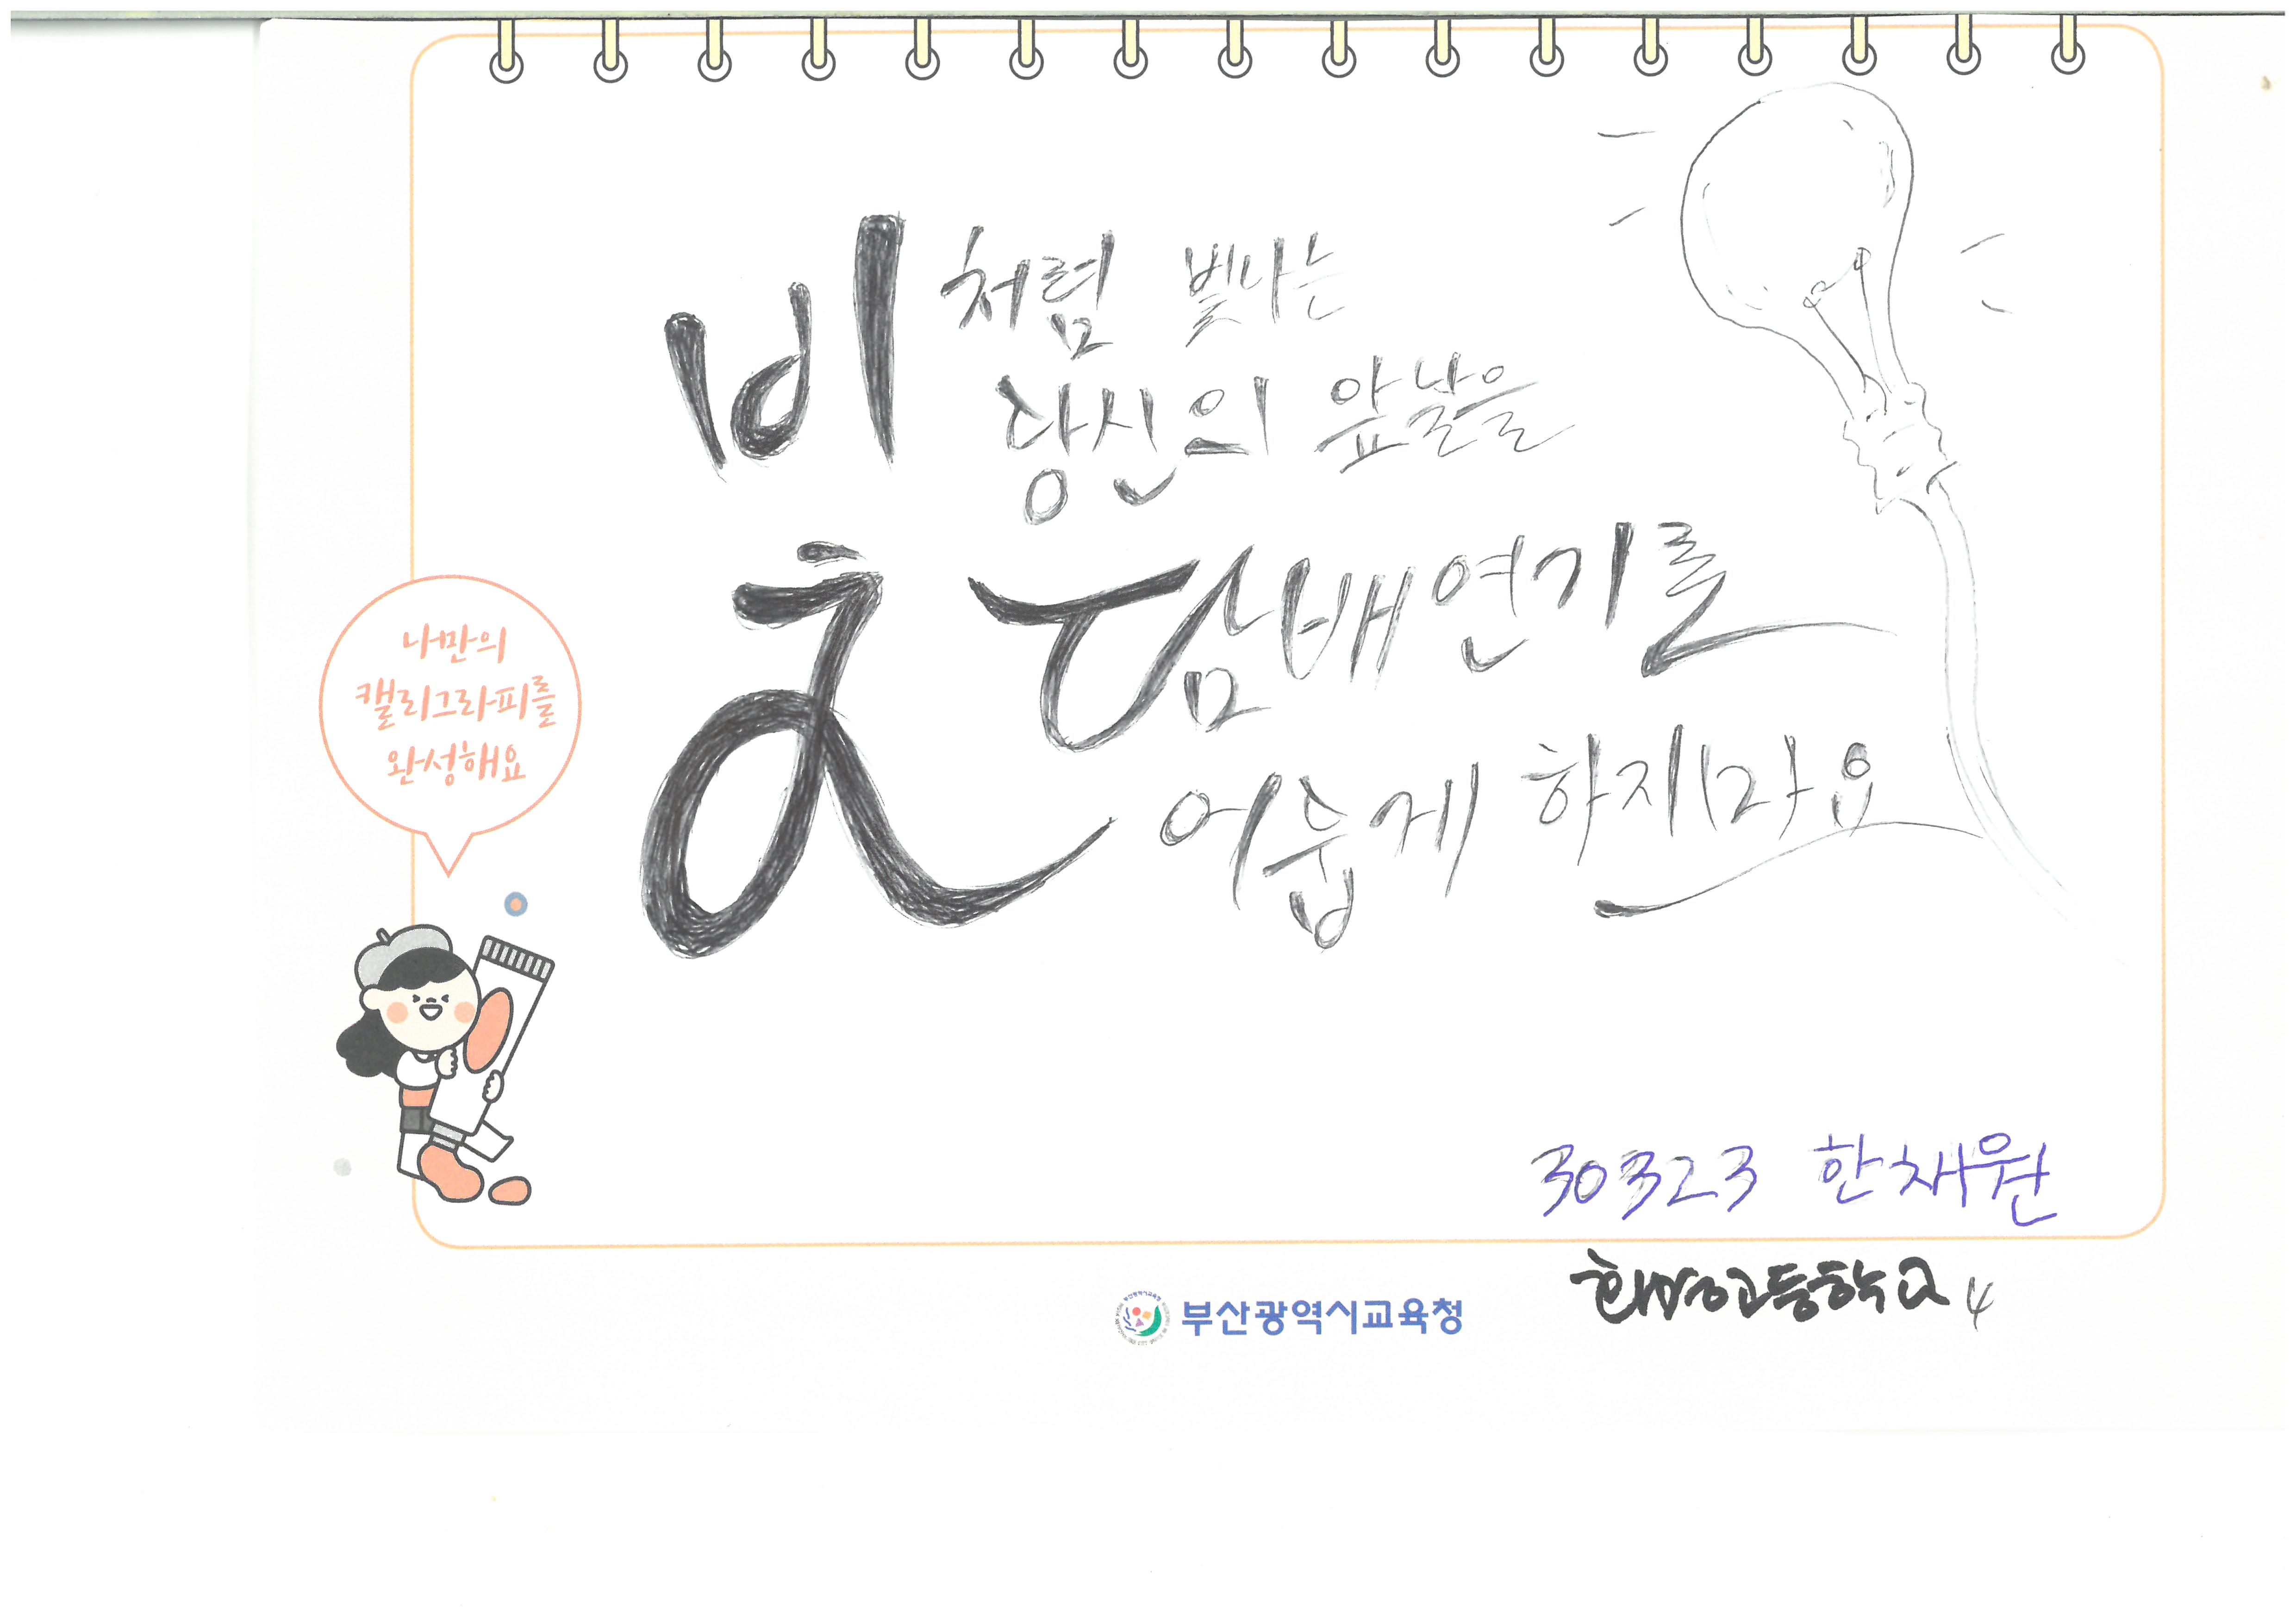 빛처럼 빛나는
당신의 앞날을
담배연기로
어둡게 하지마요
나만의
캘리그라피를
완성해요
30323 한채원
고등학교 4
부산광역시교육청